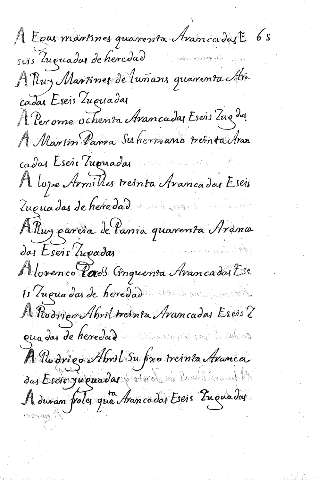 A Egas martines quarenta Arancadas E 65
seis Zuguadas de heredad
A Ruy Martines de luñans quarenta Ara
cadas Eseis Zuguadas
A Perome ochenta Arancadas Eseis Zugdas
A Martin Parra Su hermano treinta Aran
cadas Eseis Zuguadas
A lope Armilles treinta Arancadas Eseis
Zuguadas de heredad
A Ruy garcia de Pania quarenta Aranca
das Eseis Zugadas
A lorenco Cinquenta Arancadas Ese
is Zuguadas de heredad
A Rodrigo Abril treinta Arancadas Eseis Z
guadas de heredad
A Rodrigo Abril Su fixo treinta Aranca
das Eseis zuguadas
A duran quata Arancadas Eseis Zuguadas